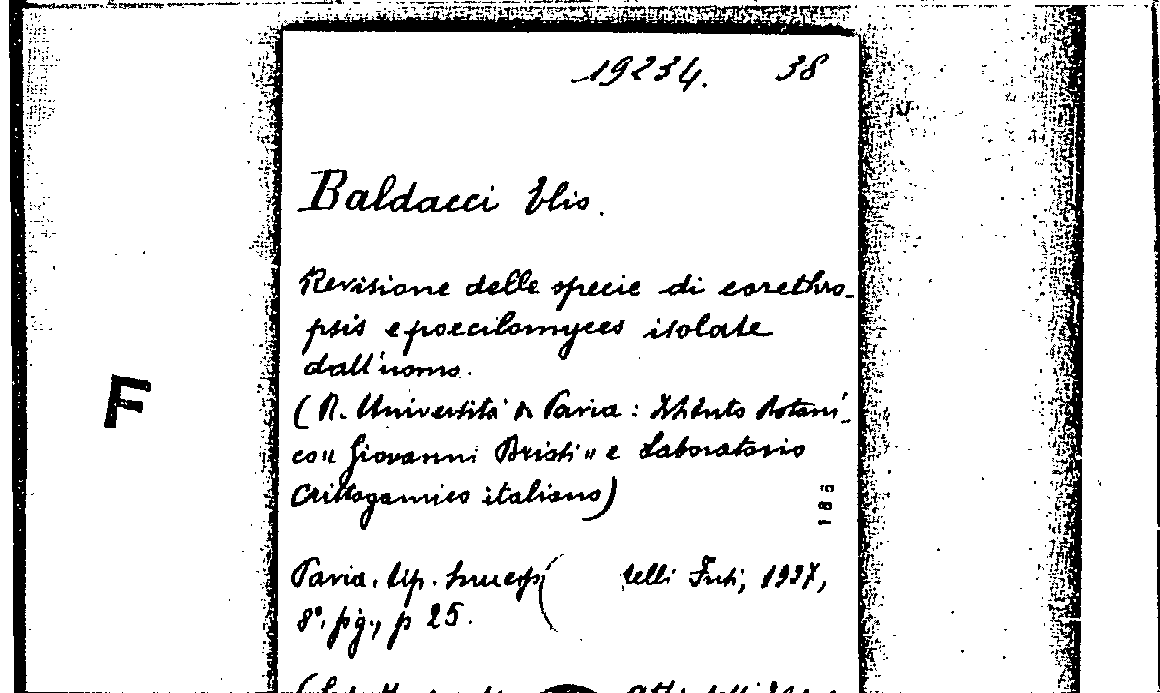 19234. 38
Baldacci Elio.
Revisione delle specie di corethro-
psis e poecilomyces isolate
dall'uomo.
(R. Università di Pavia: Istituto Botani-
co "Giovanni Briosi" e Laboratorio
Crittogamico italiano)
F
183
Pavia, Tip. Success telli Fusi, 1937,
8°, pg., p 25.